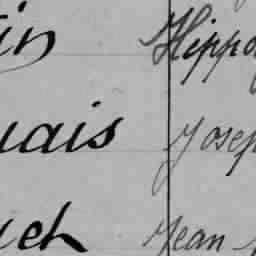 in Hippo
uais Josep
uch Jean